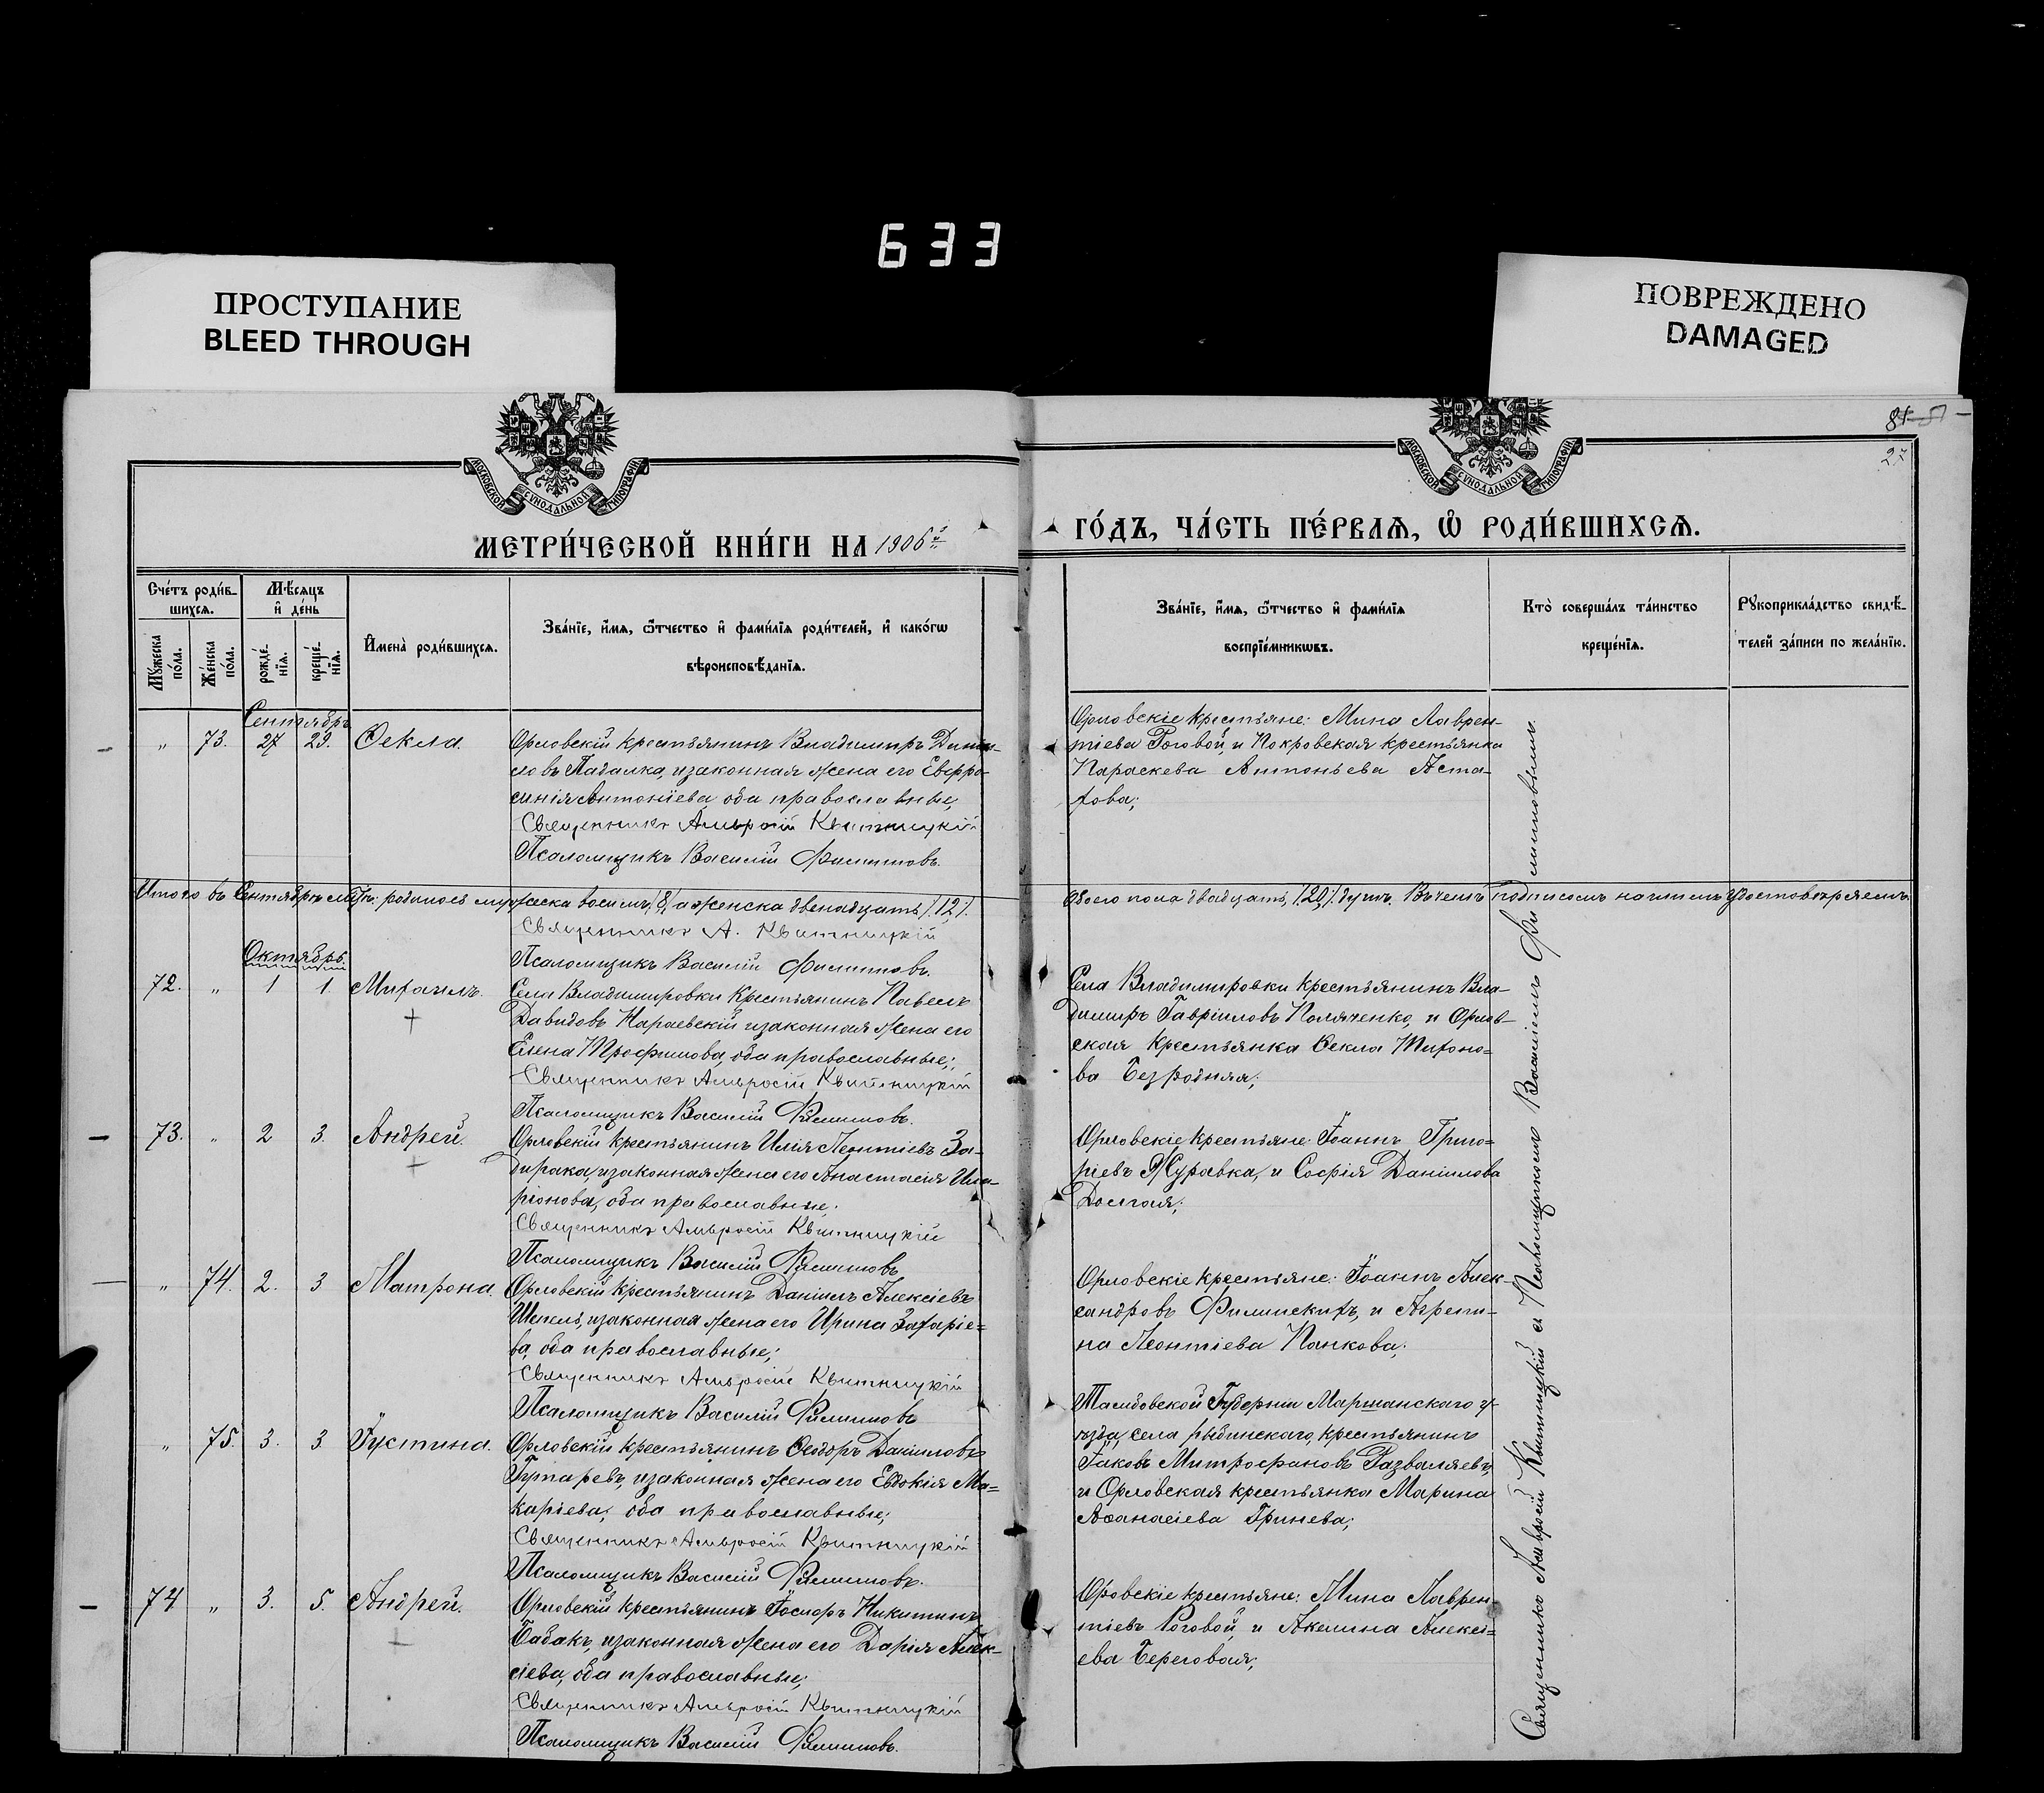 633
ПРОСТУПАНИЕ
BLEED THROUGH
ПОВРЕЖДЕНО
DAMAGED
МОСКОВСКОЙ СѴНОДАЛЬНОЙ ТИПОГРАФІИ
МОСКОВСКОЙ СѴНОДАЛЬНОЙ ТИПОГРАФІИ
81
27
МЕТРИ́ЧЕСКОЙ КНИ́ГИ НА 1906й
ГО́ДЪ, ЧА́СТЬ ПЕ́РВАѦ, Ѡ҆ РОДИ́ВШИХСѦ.
Сче́тъ роди́в-
шихсѧ.
Мѣ́сѧцъ
и҆ де́нь
Мꙋ́жеска
по́ла.
Же́нска
по́ла.
рожде́-
нїѧ.
креще́-
нїѧ.
И҆мена̀ роди́вшихсѧ.
Зва́нїе, и҆́мѧ, ѻ҆́тчество и҆ фами́лїѧ роди́телей, и҆ како́гѡ
вѣроисповѣ́данїѧ.
Зва́нїе, и҆́мѧ, ѻ҆́тчество и҆ фами́лїѧ
воспрїе́мникѡвъ.
Кто̀ соверша́лъ та́инство
креще́нїѧ.
Рꙋкоприкла́дство свидѣ́-
телей за́писи по жела́нїю.
Сентябрь
„ 73. 27 29. Ѳекла.
Орловскій крестьянинъ Владиміръ Дани-
ловъ Падалка, и законная жена его Евфро-
синія Антоніева, оба православные;
Священникъ Амвросій Квитницкій
Псаломщикъ Василій Филиповъ.
Орловскіе крестьяне: Мина Лаврен-
тіева Роговой, и Покровская крестьянка
Параскева Антоньева Аста-
хова;
Итого въ Сентябрѣ м-цѣ родилось мужеска восемь /8/ а женска двенадцать /12/.
обоего пола двадцать, /20/ душъ. Въ чемъ подписомъ нашимъ удостовѣряемъ.
Священникъ А. Квитницкій
Псаломщикъ Василій Филиповъ.
Октябрь.
72. „ 1 1. Михаилъ.
Села Владиміровки крестьянинъ Павелъ
Давидовъ Караевскій и законная жена его
Елена Трофимова, оба православные;
Священникъ Амвросій Квитницкій
Псаломщикъ Василій Филиповъ.
Села Владиміровки крестьянинъ Вла-
диміръ Гавріиловъ Поляченко, и Орлов-
ская крестьянка Ѳекла Тихоно-
ва Безродняя;
73. „ 2 3. Андрей.
Орловскій крестьянинъ Илія Леонтіевъ За-
дирака, и законная жена его Анастасія Ила-
ріонова, оба православные;
Священникъ Амвросій Квитницкій
Псаломщикъ Василій Филиповъ
Орловскіе крестьяне: Іоаннъ Григо-
ріевъ Журавка, и Софія Даніилова
Долгая;
„ 74. 2. 3 Матрона.
Орловскій крестьянинъ Даніилъ Алексіевъ
Шепель, и законная жена его Ирина Захаріе-
ва, оба православные;
Священникъ Амвросій Квитницкій
Псаломщикъ Василій Филиповъ
Орловскіе крестьяне: Іоаннъ Алек-
сандровъ Филинскихъ, и Агрепи-
на Леонтіева Панкова;
„ 75. 3. 3. Іустина.
Орловскій крестьянинъ Ѳеодоръ Даніиловъ
и законная жена его Евдокія Ма-
каріева; оба православные;
Священникъ Амвросій Квитницкій
Псаломщикъ Василій Филиповъ.
Тамбовской Губерніи Маршанскаго у-
ѣзда, села рыбинскаго, крестьянинъ
Іаковъ Митрофановъ Разваляевъ,
и Орловская крестьянка Марина
Аѳанасіева Гринева;
74 „ 3. 5. Андрей.
Орловскій крестьянинъ Іосифъ Никитинъ
Сабакъ, и законная жена его Дарія Алек-
сіева, оба православные;
Священникъ Амвросій Квитницкій
Псаломщикъ Василій Филиповъ.
Оровскіе крестьяне: Мина Лаврен-
тіевъ Роговой, и Акелина Алексі-
ева Береговая;
Священникъ Амвросій Квитницкій съ Псаломщикомъ Василіемъ Филиповымъ.